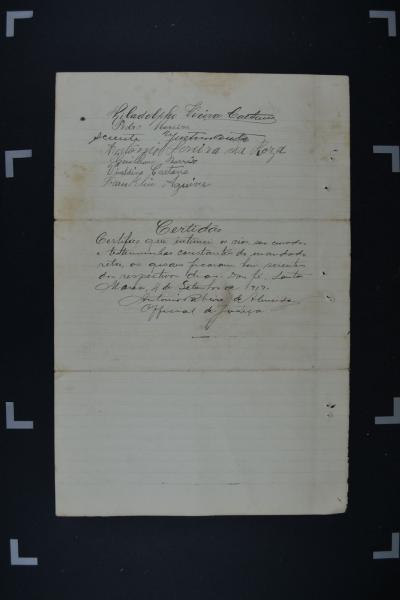 Philadelpho Vieira Caetano
Pedro Moreira
Sciente
Antonio Pereira da Roza
Franklin Aquino
Certidão
Certifico que intimei os réos seu curador
e testemunhas constantes do mandado
retro, os quaes ficaram bem scientes
dos respectivos Dou fé. Santa
Maria, 4 de Setembro de 1917.
Antonio Ribeiro de Almeida
Official de Justiça